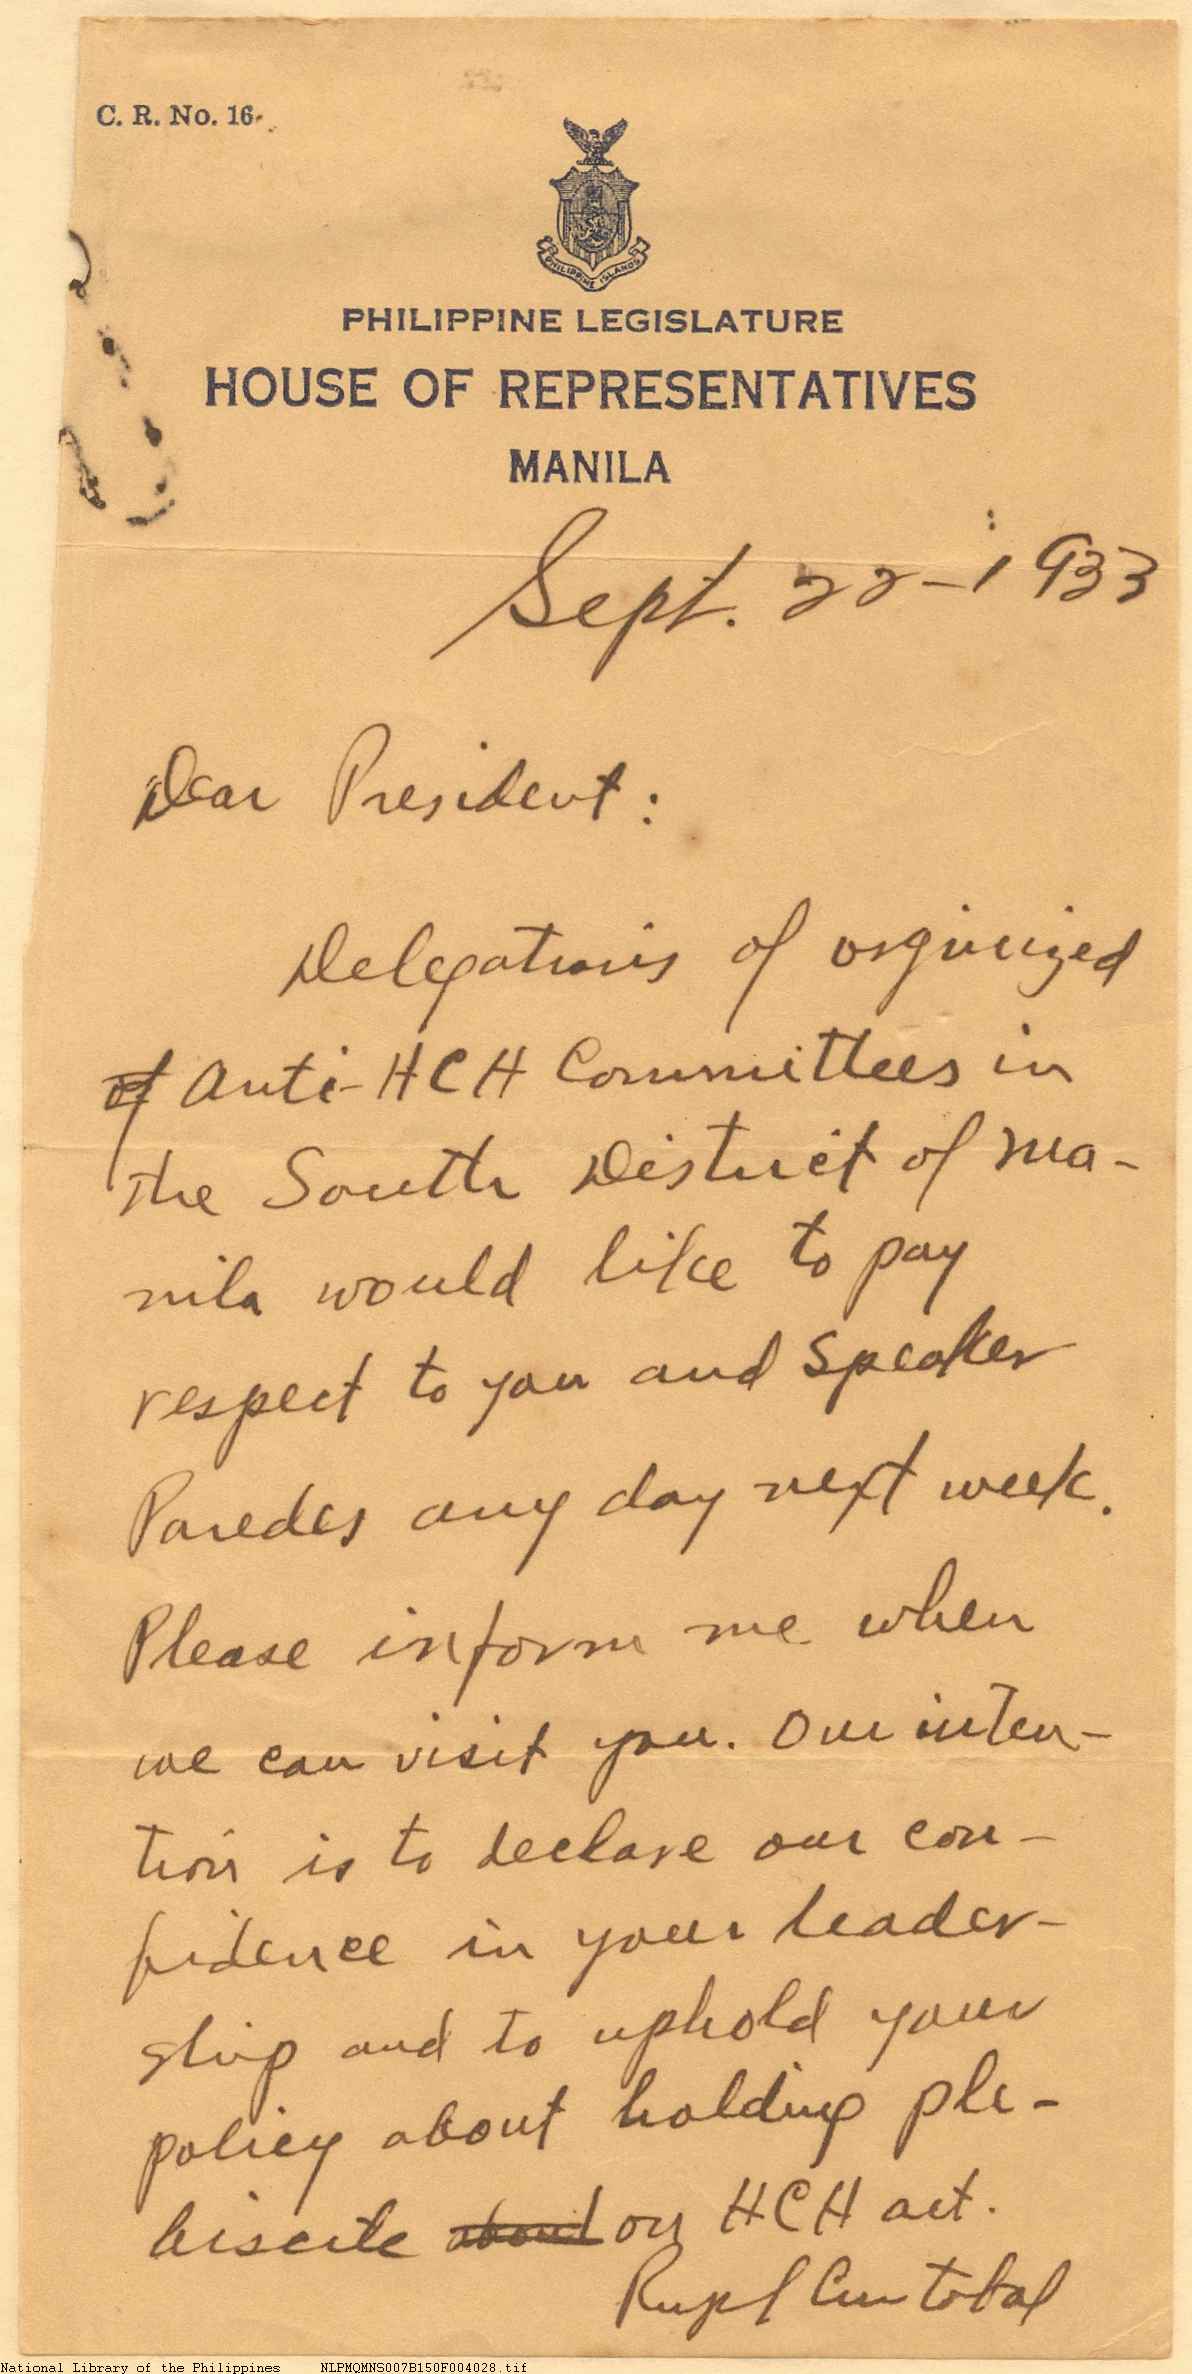 C. R. No. 16
PHILIPPINE ISLANDS
PHILIPPINE LEGISLATURE
HOUSE OF REPRESENTATIVES
MANILA
Sept. 22-1933
Dear President:
Delegations of orginized
of Anti-HCH Committees in
the South District of Ma-
nila would like to pay
respect to you and Speaker
Paredes any day next week.
Please inform me when
we can visit you. Our inten-
tion is to declare our con-
fidence in your leader-
ship and to uphold your
policy about holding ple-
biscite about on HCH act.
National Library of the Philippines NLPMQMNS007B150F004028.tif